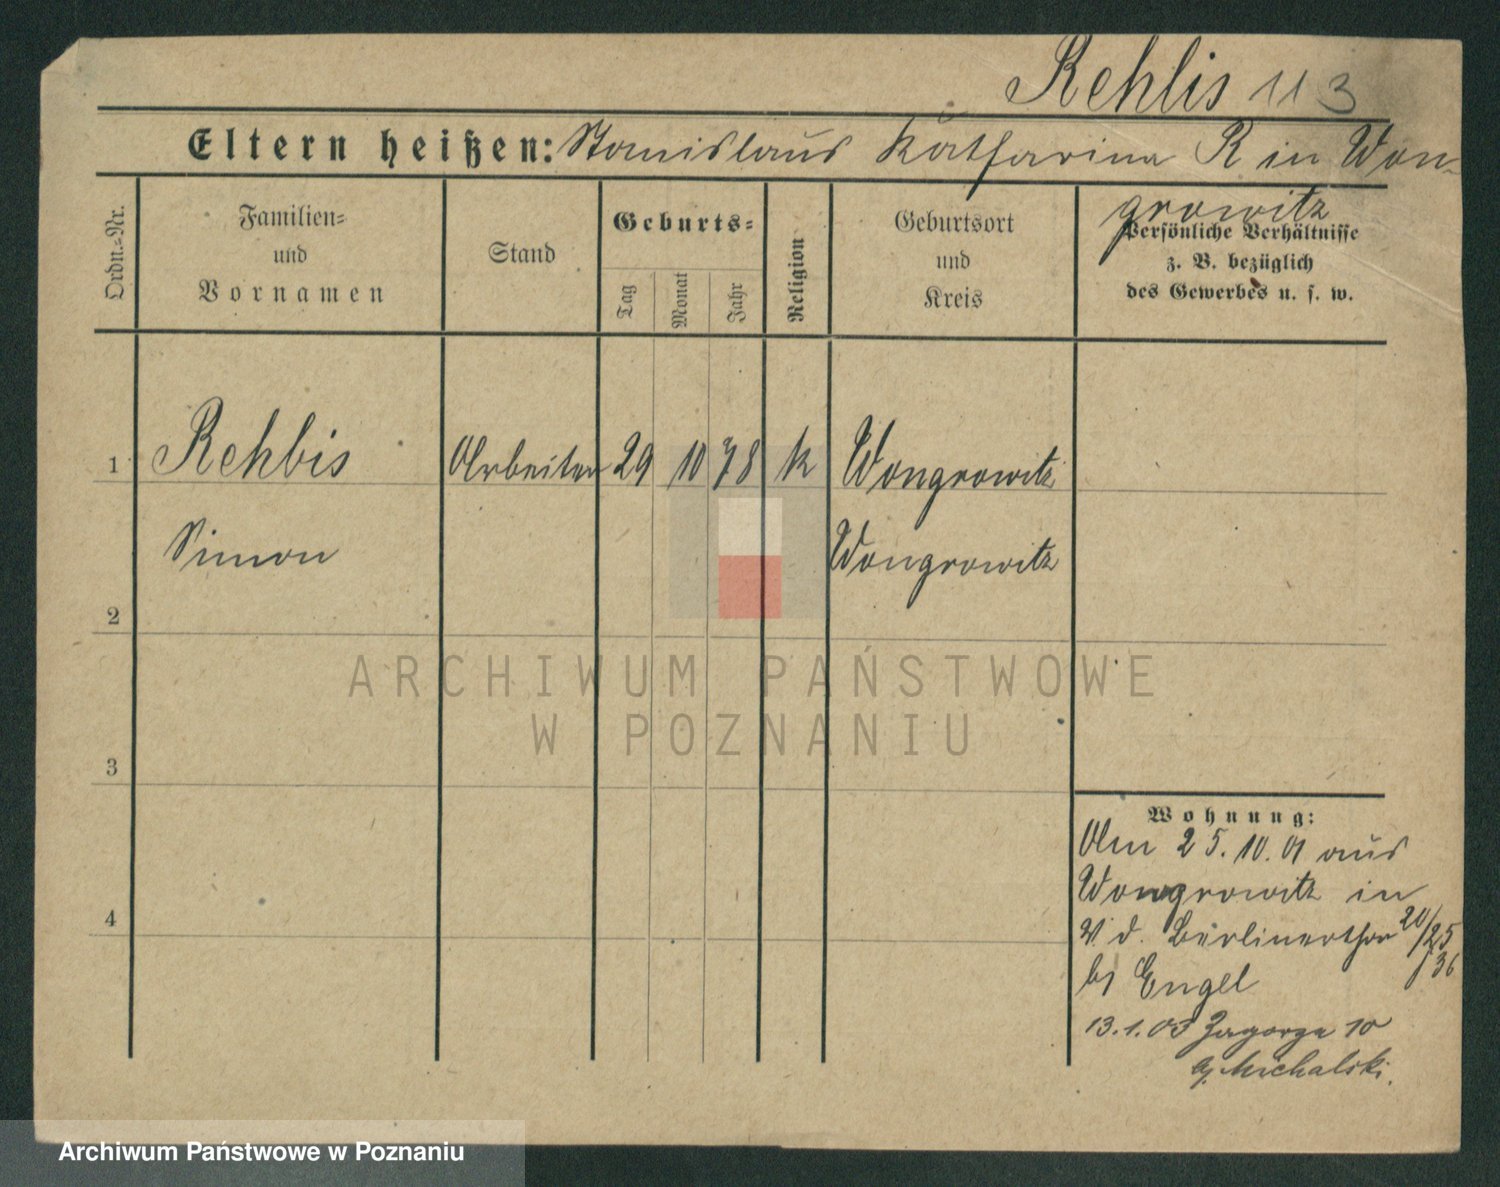 Rehlis 113
Eltern heißen: Stanislaus Katharina R in Won-
growitz
Ordn.-Nr.
Familien-
und
Vornamen
Stand
Geburts-
Tag
Monat
Jahr
Religion
Geburtsort
und
Kreis
Persönliche Verhältnisse
z. B. bezüglich
des Gewerbes u. s. w.
1 Rehbis Arbeiter 29 10 78 k Wongrowitz
Simon Wongrowitz
2
3
4
ARCHIWUM PAŃSTWOWE
W POZNANIU
Wohnung:
Am 25.10.01 aus
Wongrowitz in
V. d. Berlinerthor 20/25
/36
bj Engel
13.1.03 Zagorze 10
bj. Michalski.
Archiwum Państwowe w Poznaniu